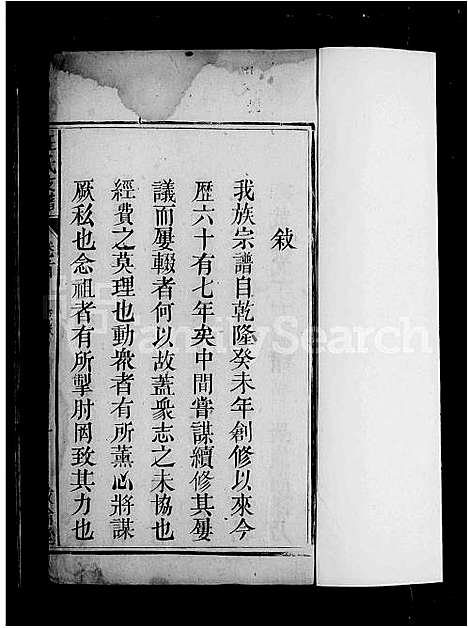 敍
我族宗譜自乾隆癸未年創修以來今
歴六十有七年矣中間嘗謀續修其屢
議而屢輟者何以故蓋衆志之未協也
經費之莫理也動衆者有所薰心將謀
厥私也念祖者有所掣肘罔致其力也
FamilySearch